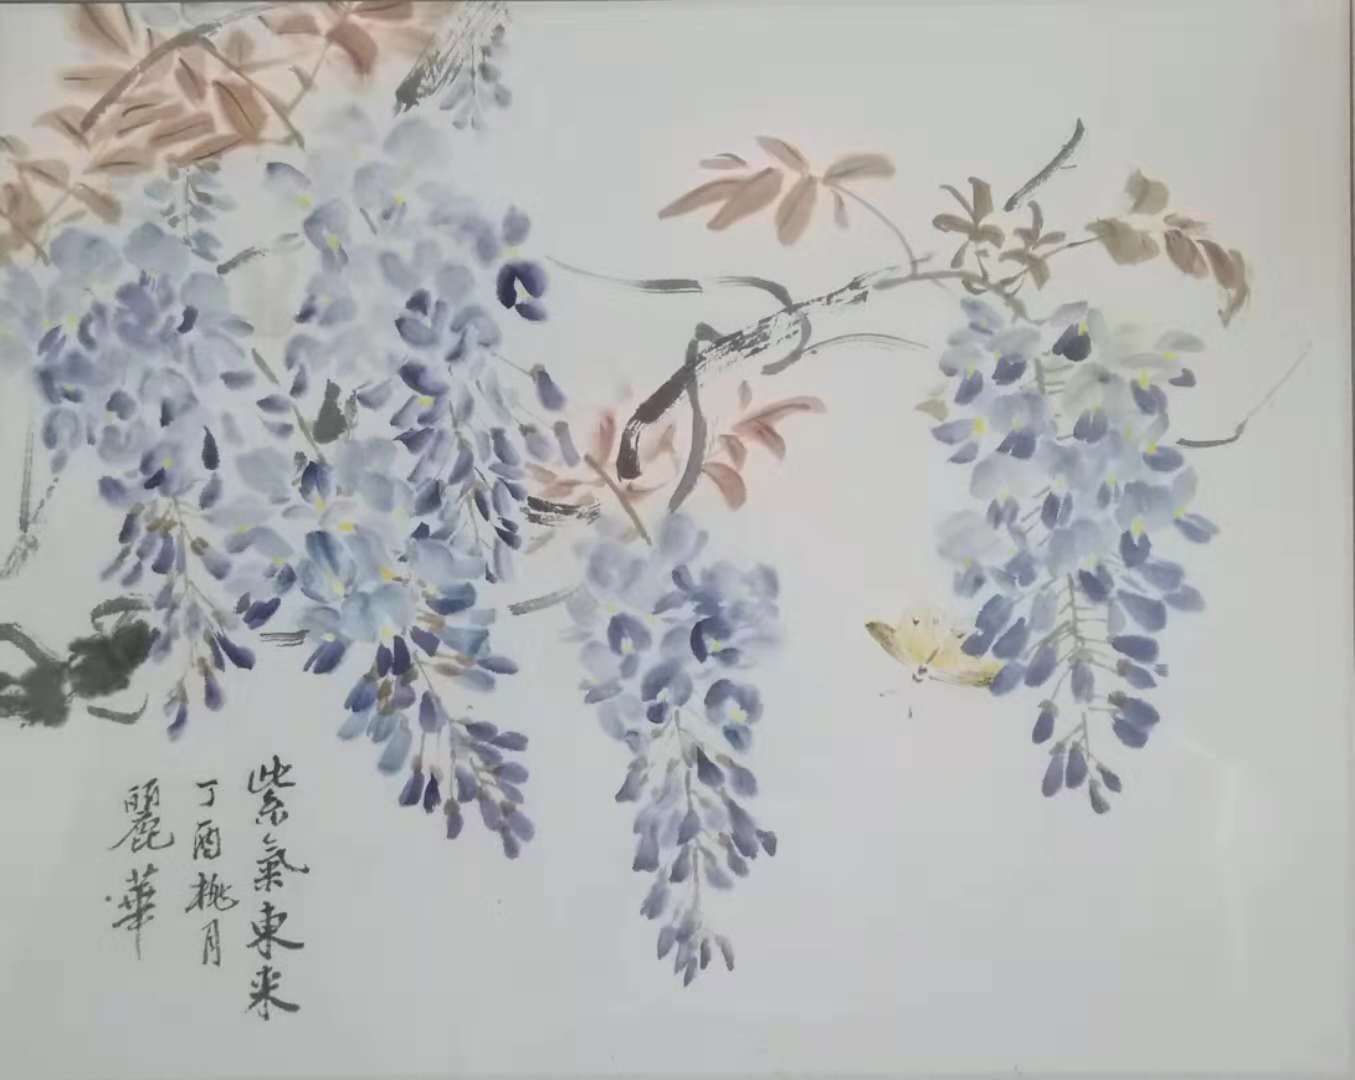 紫氣東来
丁酉桃月
麗華